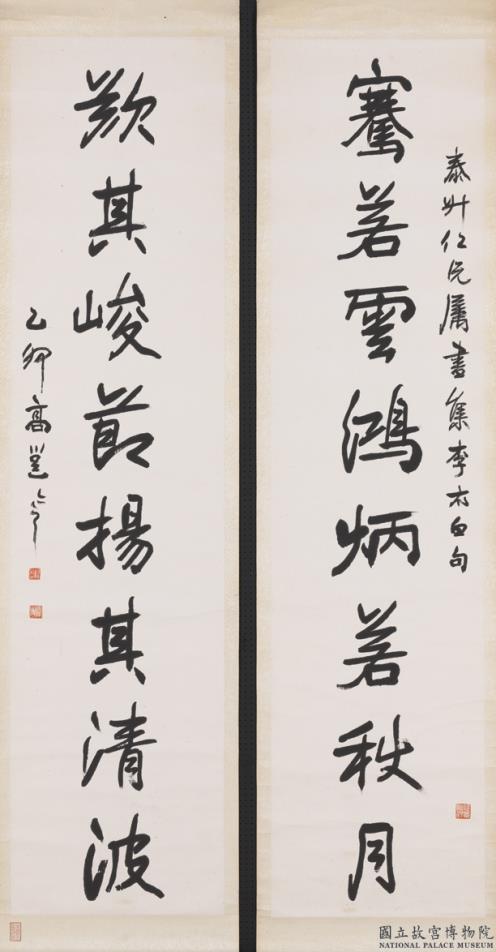 騫若雲鴻炳若秋月
仁兄屬書集李太白句
歎其峻節揚其清波
乙卯高邕
國立故宮博物院
NATIONAL PALACE MUSEUM